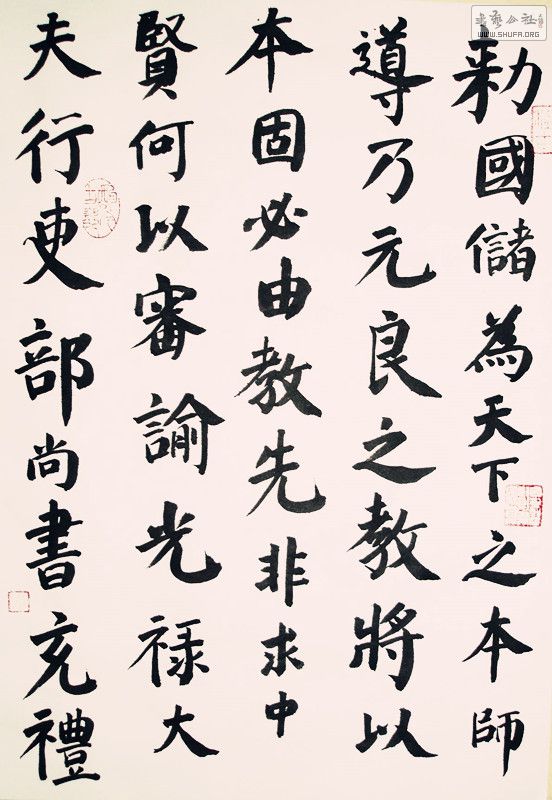 勅國儲為天下之本師
導乃元良之教將以
本固必由教先非求中
賢何以審諭光禄大
夫行吏部尚書充禮
書藝公社
WWW.SHUFA.ORG